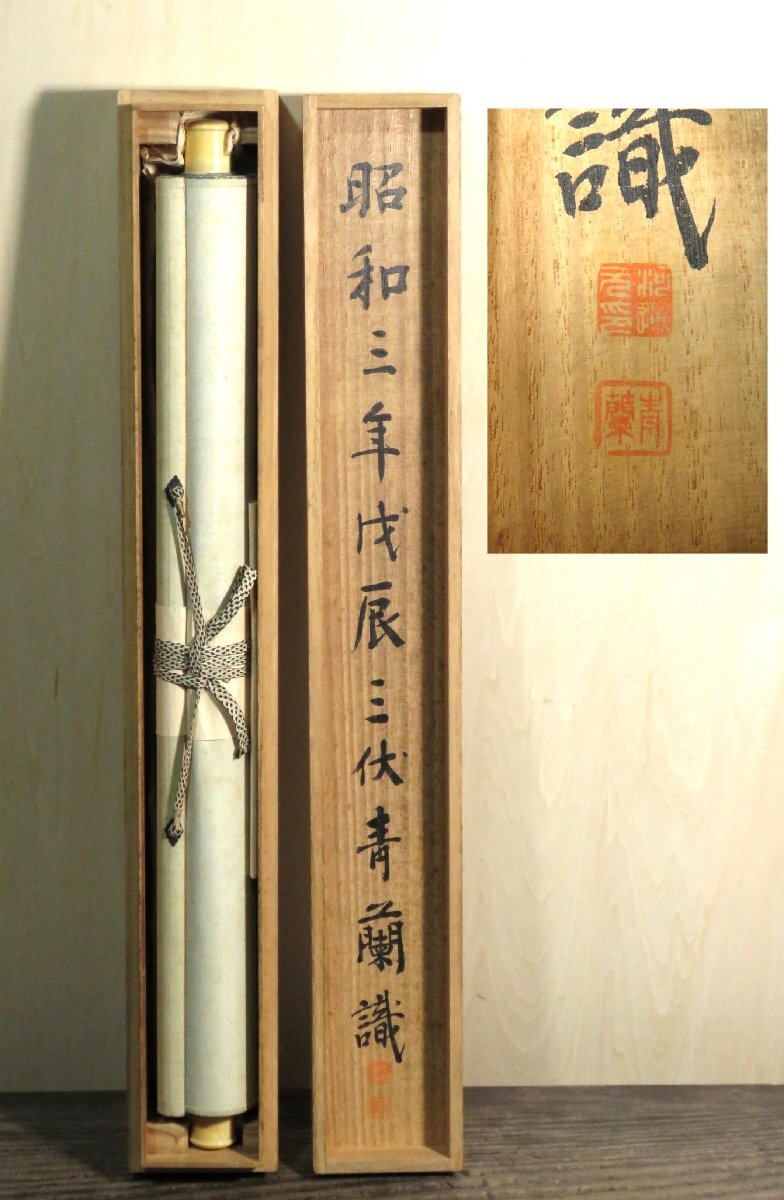 昭和三年戊辰三伏青蘭識
識
青蘭